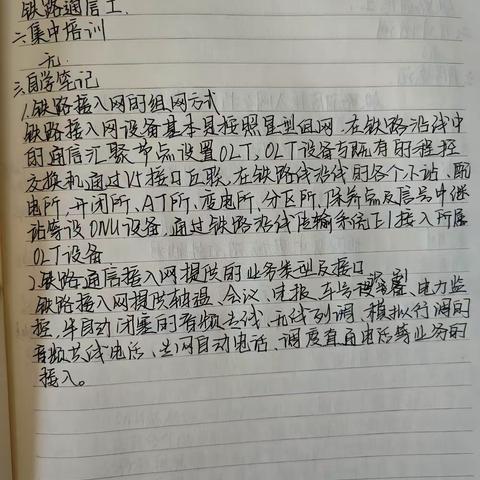 铁路通信工.
二.集中培训
无.
三.自学笔记
1.铁路接入网的组网方式
铁路接入网设备基本是按照星型组网.在铁路沿线中
的通信汇聚节点设置OLT,OLT设备与既有的程控
交换机通过V5接口互联,在铁路线沿线的各个小站、配
电所,开闭所、AT所、变电所,分区所、保养点及信号中继
站等设ONU设备,通过铁路沿线传输系统E1接入所属
OLT设备
2.铁路通信接入网提供的业务类型及接口
铁路接入网提供 会议、电报、车号 、电力监
控,半自动闭塞的音频专线、无线列调、模拟行调的
音频专线电话、公网自动电话、调度直通电话等业务的
接入。